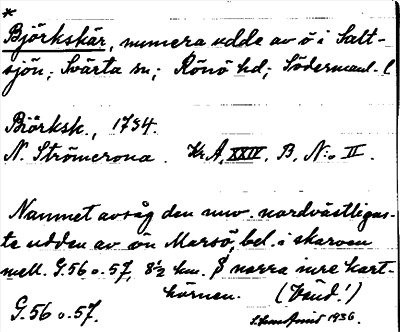 *
Björkskär, numera udde av ö i Salt-
sjön; Svärta sn; Rönö hd; Södermanl. l
Biörksk., 1734.
N. Strömcrona. Kr. A, XXIV, B, N:o II.
Namnet avsåg den nuv. nordvästligas-
te udden av ön Marsö, bel. i skarven
mell. G.56 o. 57, 8½ km. norra inre kart-
hörnen. (Vänd!)
G.56 o. 57. 1936.